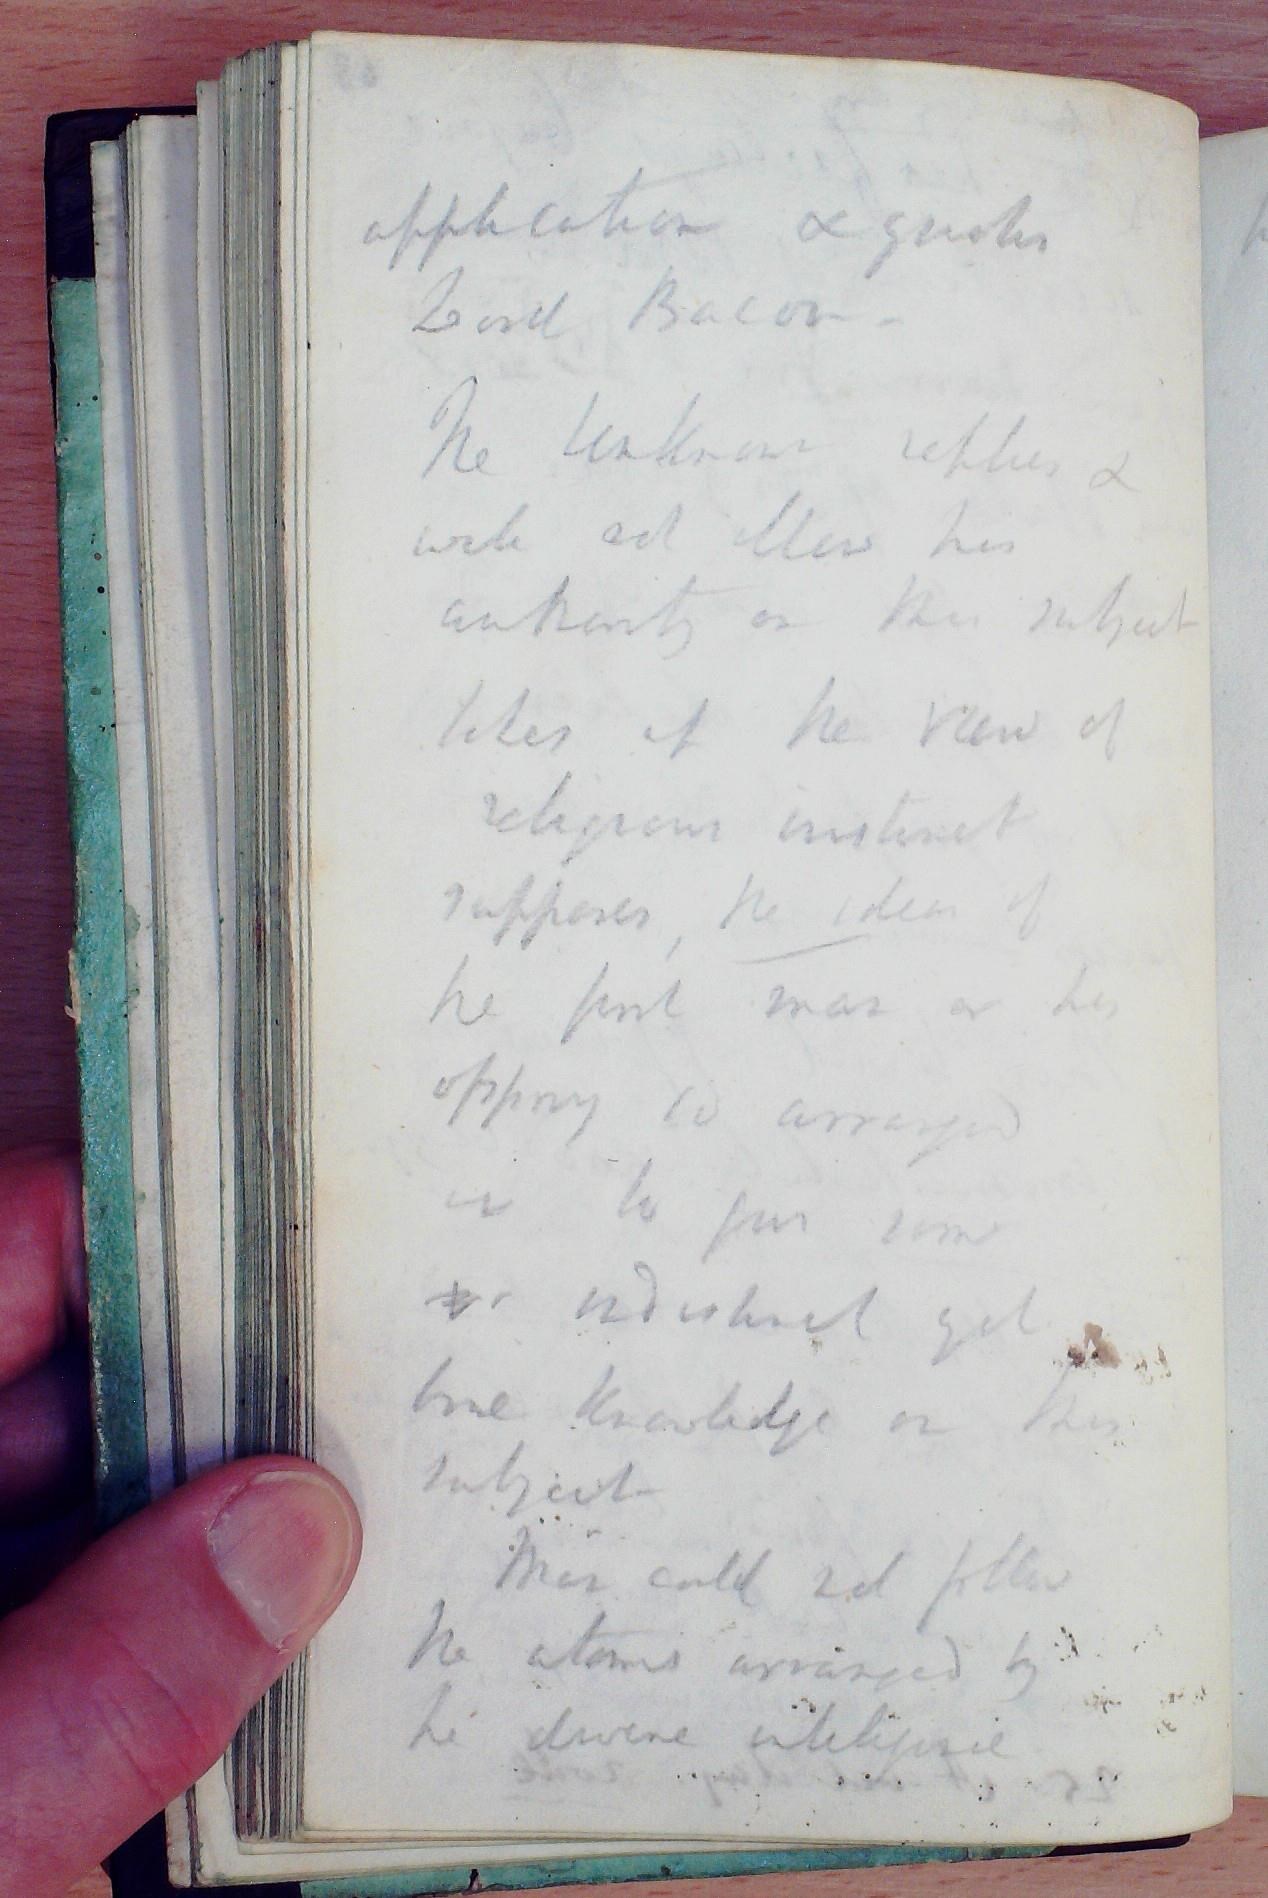 application & quotes
Lord Bacon -
The Unknown replies &
will not allow his
authority on this subject
takes up the view of
religious instinct
supposes, the ideas of
the first man or his
offspring so arranged
as to give some
indistinct yet
true knowledge on this
subject
Man could not follow
the atoms arranged by
the divine intelligence